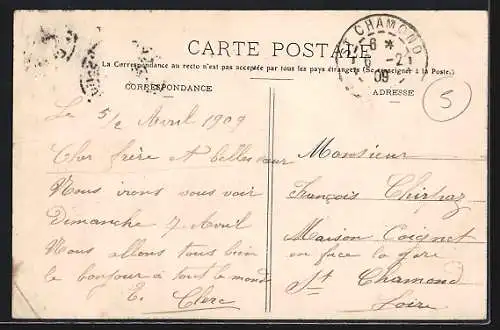 CARTE POSTALE
La Correspondance au recto n'est pas acceptée par tous les pays étrangers (Se renseigner à la Poste)
CORRESPONDANCE
ADRESSE
CHAMOND
09
5
Le 5/2 Avril 1909
Cher frère et belles sœur
Nous irons vous voir
Dimanche 7 Avril
Nous allons tous bien
le bonjour à tout le monde
E. Clerc
Monsieur
François
Maison Coignet
en face la gare
St Chamond
Loire